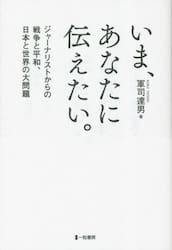 いま、
あなたに
伝えたい。
軍司達男・著
ジャーナリストからの
戦争と平和、
日本と世界の大問題
一粒書房